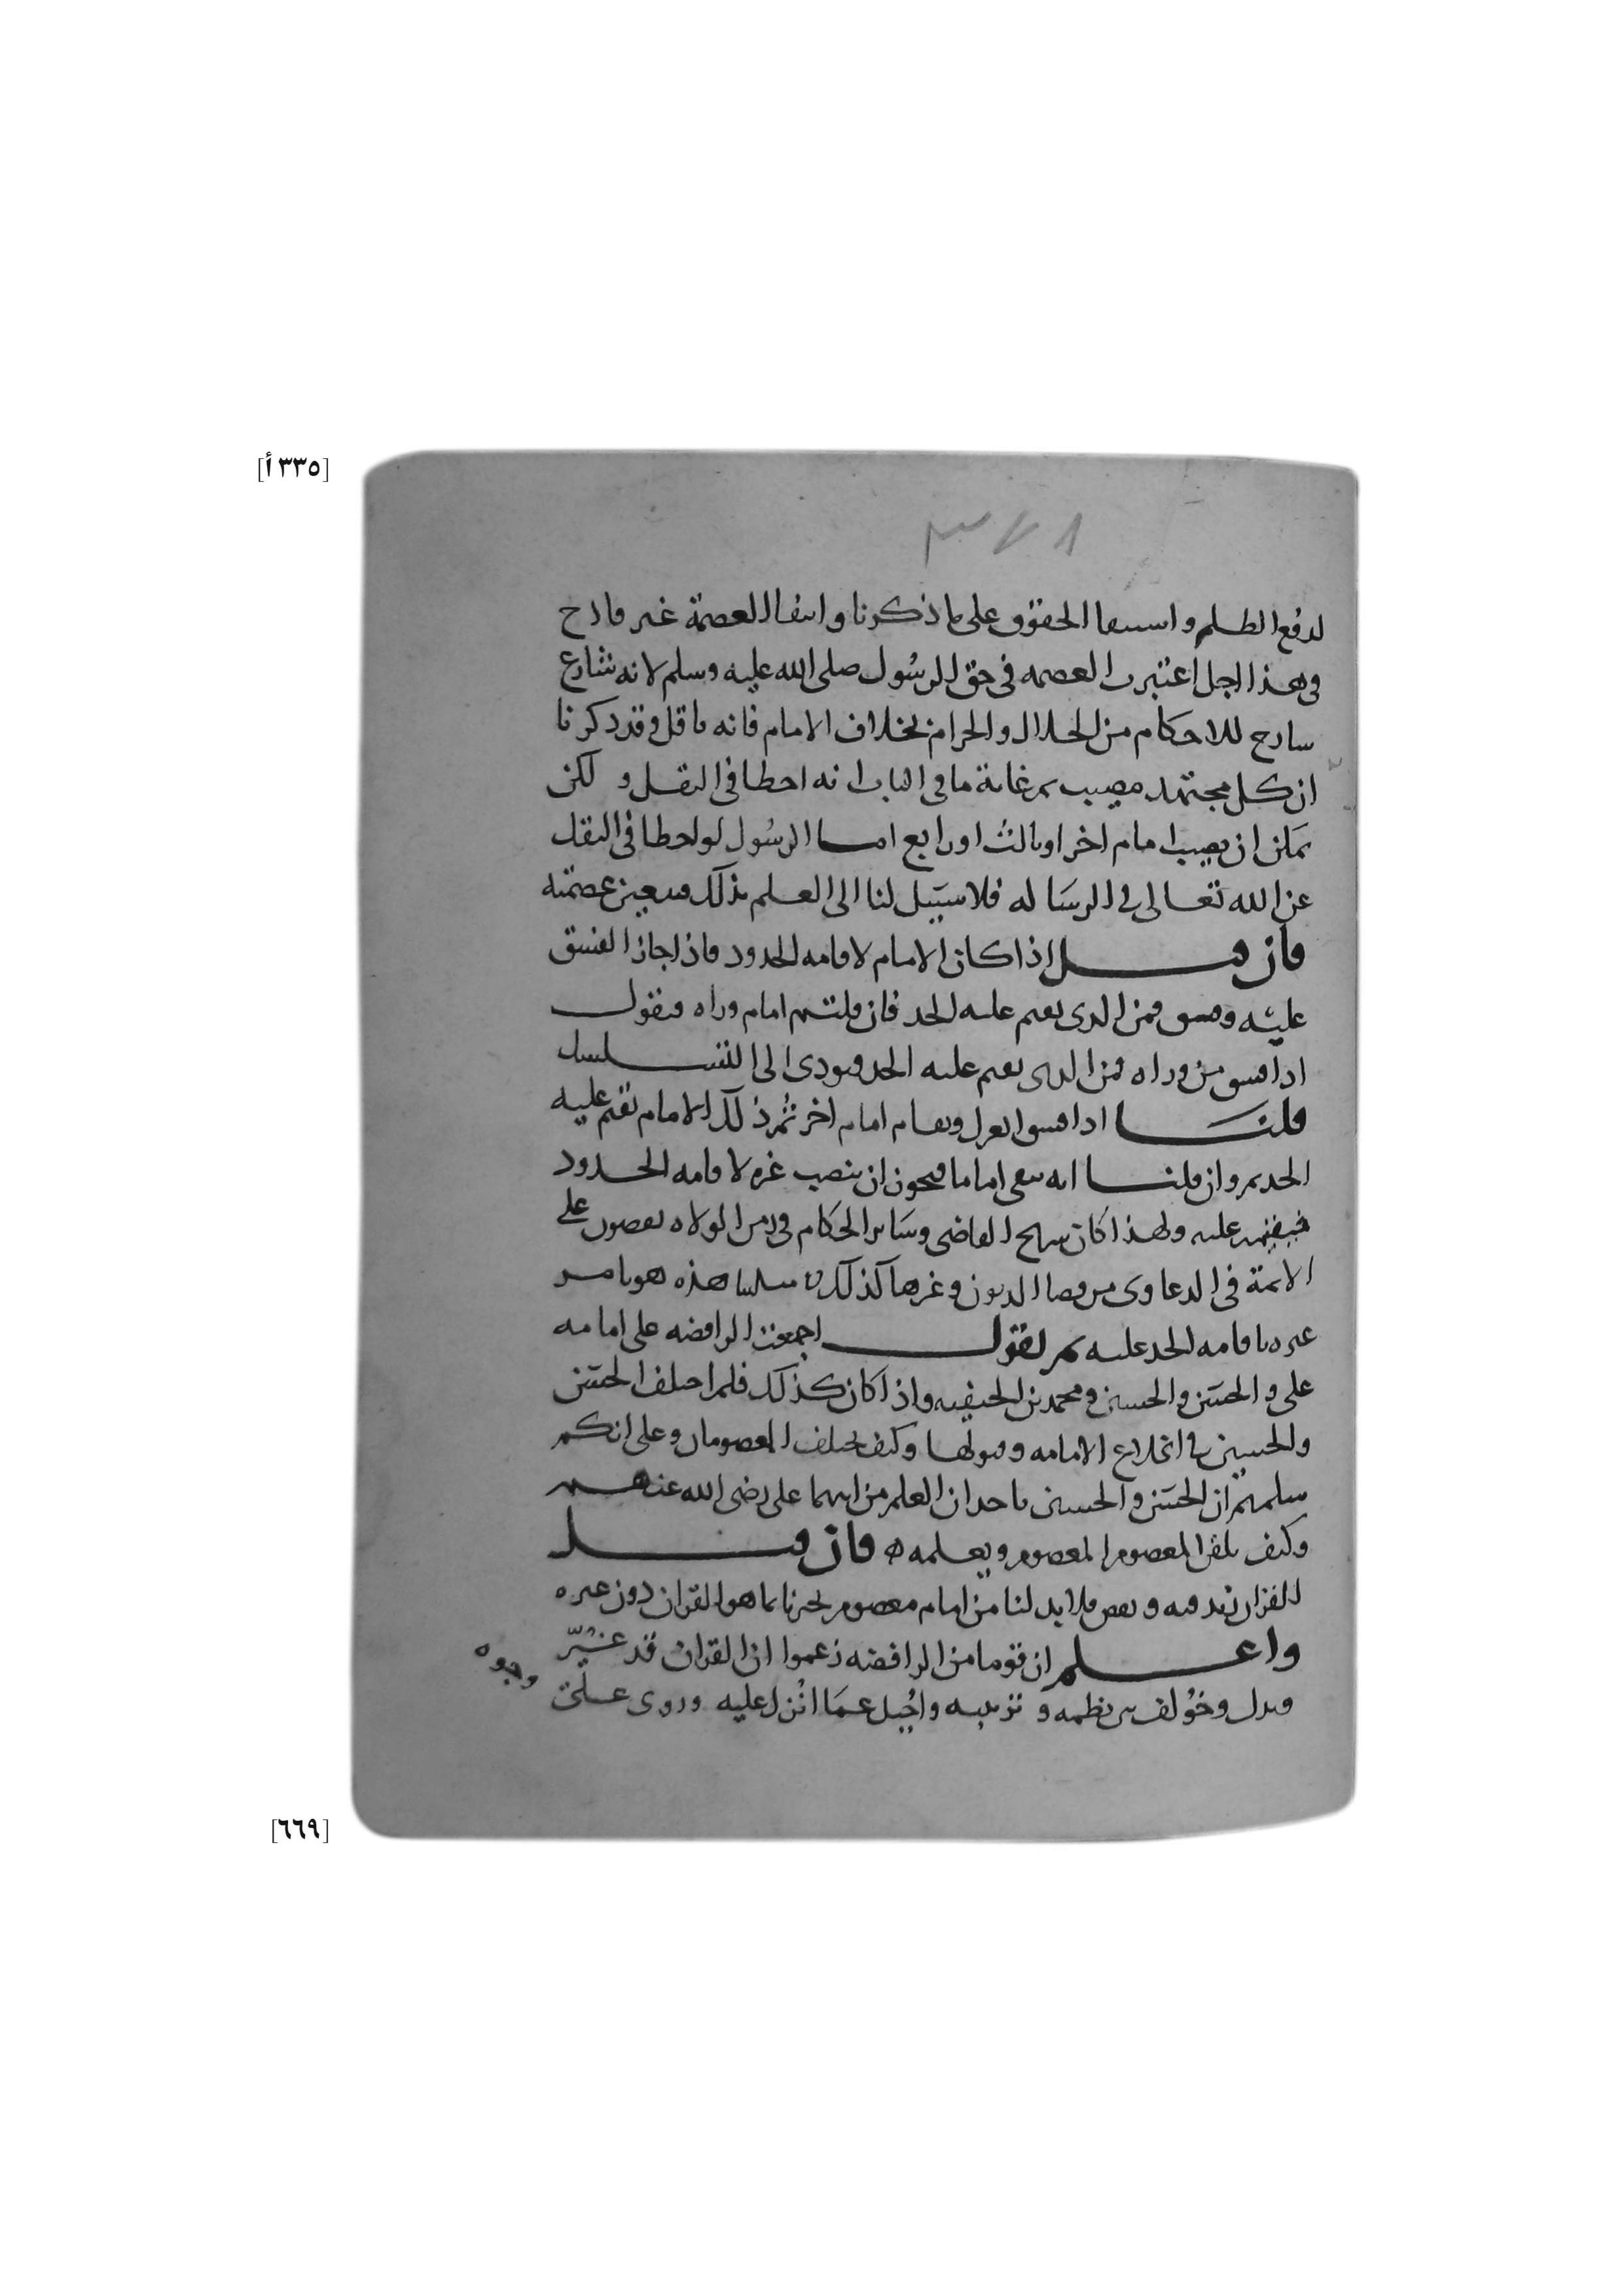 [٣٣٥ أ]
٣٧٨
لدفع الظلم واستيفا الحقوق على ما ذكرنا وانتفا العصمة غير قادح
في هذا ولاجل اعتبرت العصمه في حق الرسول صلى الله عليه وسلم لانه شارع
شارح للاحكام من الحلال والحرام بخلاف الامام فانه ناقل وقد ذكرنا
ان كل مجتهد مصيب ثم غاية ما في الباب انه اخطا في النقل ولكن
يمكن ان يصيب امام اخر او ثالث او رابع اما الرسول لو اخطا في النقل
عن الله تعالى في الرساله فلا سبيل لنا الى العلم بذلك فتعين عصمته
فان قيل اذا كان الامام لاقامه الحدود فاذا جاز الفسق
عليه وفسق فمن الذي يقيم عليه الحد فان قلتم امام وراه فنقول
اذا فسق من وراه فمن الذي يقيم عليه الحد فيودي الى التسلسل
قلنا اذا فسق انعزل ويقام امام اخر ثم ذلك الامام يقيم عليه
الحد ثم وان قلنا انه يبقى اماما فيجوز ان ينصب غيره لاقامه الحدود
فيقيمه عليه ولهذا كان القاضي وساير الحكام في زمن الولاه يقضون على
الايمة في الدعاوى من قضا الديون وغيرها كذلك مسلتنا هذه هو يامر
غيره باقامه الحد عليه ثم نقول اجمعت الرافضه على امامه
علي والحسن والحسين ومحمد بن الحنفيه واذا كان كذلك فلم اختلف الحسن
والحسين في انخلاع الامامه وقبولها وكيف يختلف المعصومان وعلى انكم
سلمتم ان الحسن والحسين ياخذان العلم من ابيهما علي رضي الله عنهم
وكيف يلقن المعصوم المعصوم ويعلمه ه فان قيل
القران زيد فيه ونقص فلا بد لنا من امام معصوم يخبرنا بما هو القران دون غيره
واعلم ان قوما من الرافضه زعموا ان القران قد غُيّر
وبدل وخُولف بين نظمه وترتيبه واُحيل عما اُنزل عليه وروى على
وجوه
[٦٦٩]